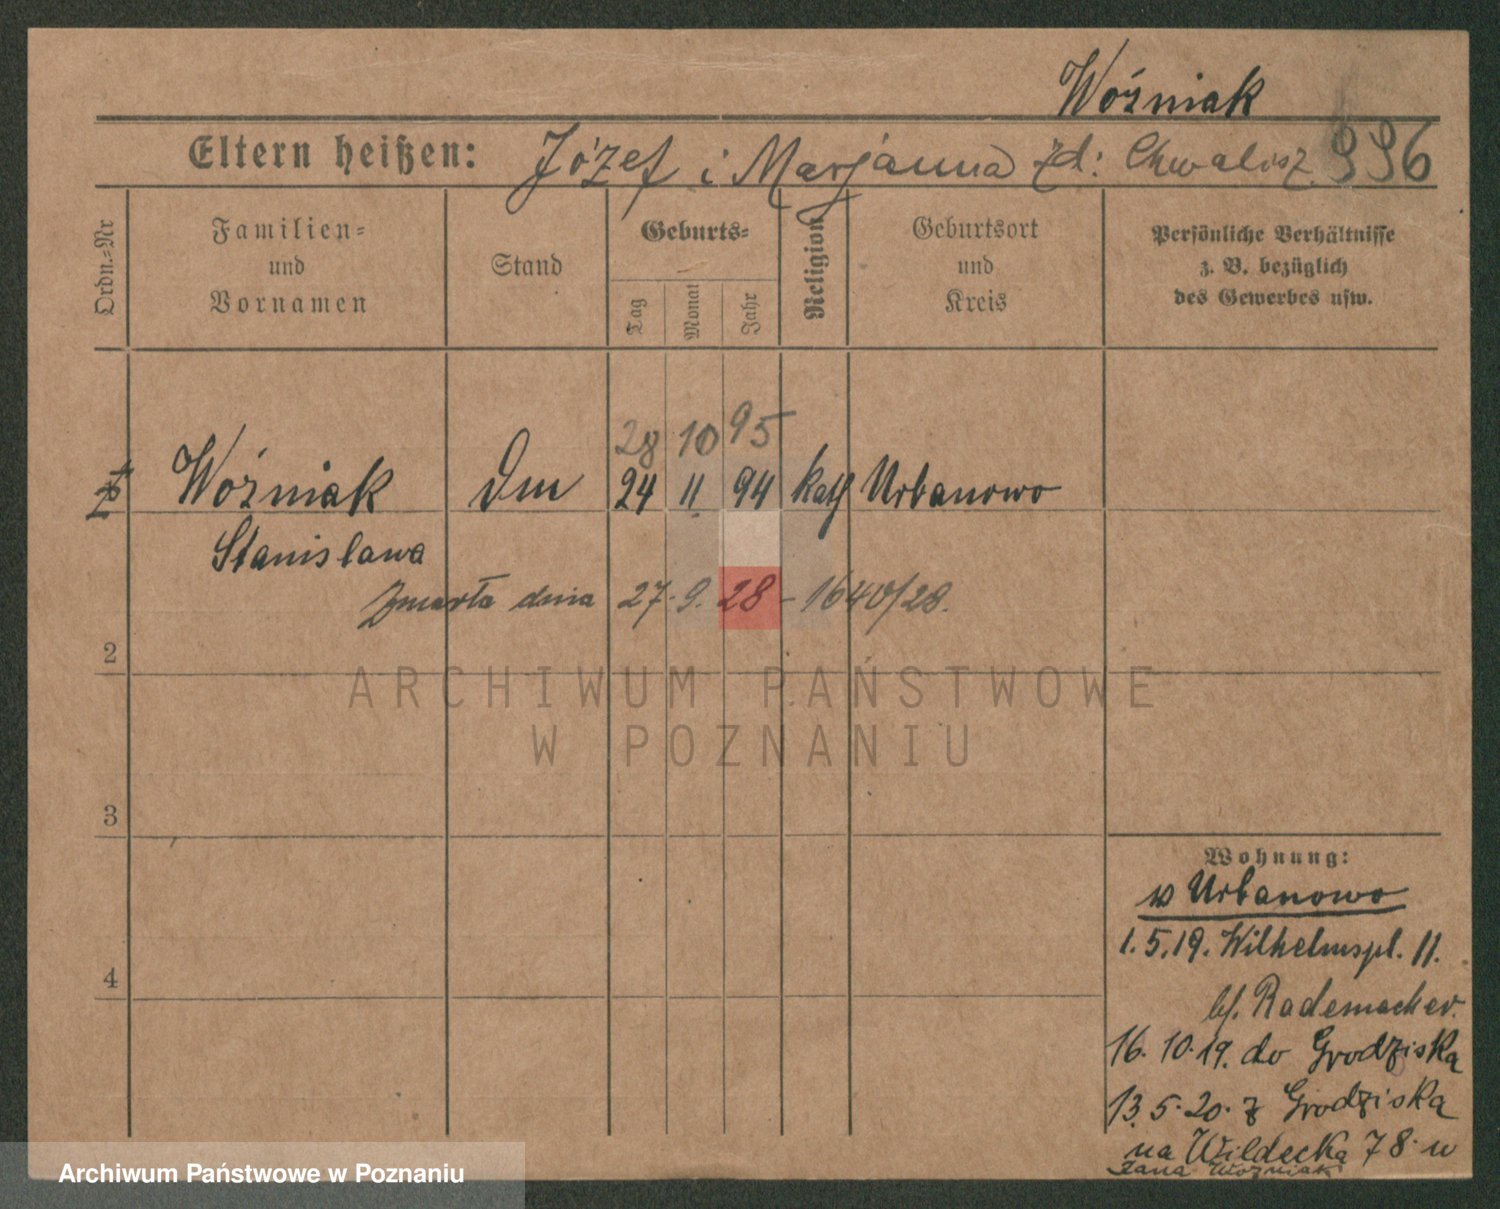 Woźniak
Eltern heißen: Józef i Marjanna zd: Chwalisz. 996
Ordn.-Nr
Familien- und Vornamen
Stand
Geburts-
Tag
Monat
Jahr
Religion
Geburtsort und Kreis
Persönliche Verhältnisse z. B. bezüglich des Gewerbes usw.
28 10 95
Woźniak Dm 24 11 94 kath Urbanowo
Stanisława
Zmarła dnia 27. 9. 28 - 1640/28.
2
ARCHIWUM PAŃSTWOWE
W POZNANIU
3
4
Wohnung:
w Urbanowo
1.5.19. Wilhelmspl. 11.
bf. Rademacher.
16. 10. 19. do Grodziska
13. 5. 20. z Grodziska
na Wildecka 78. u
Jana Woźniak
Archiwum Państwowe w Poznaniu